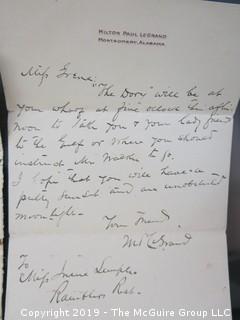 MILTON PAUL LEGRAND
MONTGOMERY, ALABAMA
Miss Irene:
"The Dory" will be at
your wharf at five o'clock this after
noon to take you & your lady friend
to the Gulf or where you should
instruct Mr to go.
I hope that you will have a
pretty sunset and an unobstructed
moonlight.
Your Friend,
M LeGrand
To
Miss Irene
Ramblers Rest.
Copyright 2019 - The McGuire Group LLC